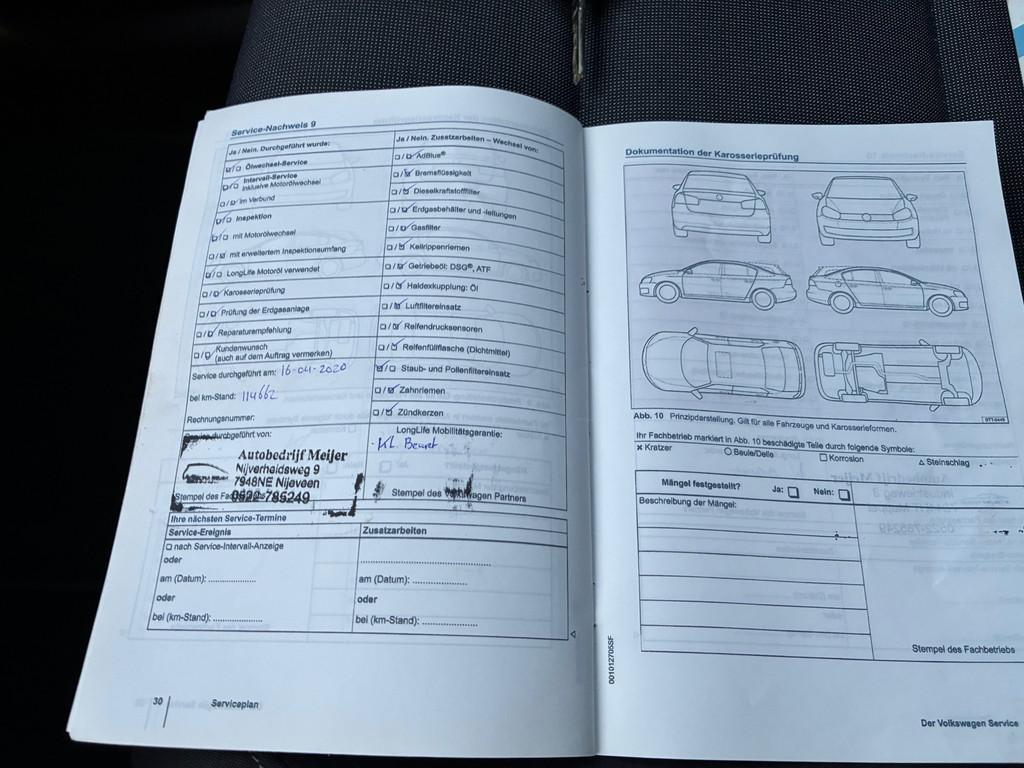 Service-Nachweis 9
Ja / Nein. Durchgeführt wurde:
Ölwechsel-Service
Intervall-Service
inklusive Motorölwechsel
im Verbund
Inspektion
mit Motorölwechsel
mit erweitertem Inspektionsumfang
LongLife Motoröl verwendet
Karosserieprüfung
Prüfung der Erdgasanlage
Reparaturempfehlung
Kundenwunsch
(auch auf dem Auftrag vermerken)
Service durchgeführt am: 16-04-2020
bei km-Stand: 114662
Rechnungsnummer:
Service durchgeführt von:
Autobedrijf Meijer
Nijverheidsweg 9
7948NE Nijeveen
0522-785249
Stempel des
Ja / Nein. Zusatzarbeiten – Wechsel von:
AdBlue®
Bremsflüssigkeit
Dieselkraftstofffilter
Erdgasbehälter und -leitungen
Gasfilter
Keilrippenriemen
Getriebeöl: DSG®, ATF
Haldexkupplung: Öl
Luftfiltereinsatz
Reifendrucksensoren
Reifenfüllflasche (Dichtmittel)
Staub- und Pollenfiltereinsatz
Zahnriemen
Zündkerzen
LongLife Mobilitätsgarantie:
Stempel des Volkswagen Partners
Ihre nächsten Service-Termine
Service-Ereignis
Zusatzarbeiten
nach Service-Intervall-Anzeige
oder
am (Datum): ..................
oder
bei (km-Stand): ..................
am (Datum): ..................
oder
bei (km-Stand): ..................
30
Serviceplan
Dokumentation der Karosserieprüfung
Abb. 10 Prinzipdarstellung. Gilt für alle Fahrzeuge und Karosserieformen.
Ihr Fachbetrieb markiert in Abb. 10 beschädigte Teile durch folgende Symbole:
× Kratzer
Beule/Delle
Korrosion
△ Steinschlag
Mängel festgestellt? Ja: Nein:
Beschreibung der Mängel:
Stempel des Fachbetriebs
001012705SF
Der Volkswagen Service